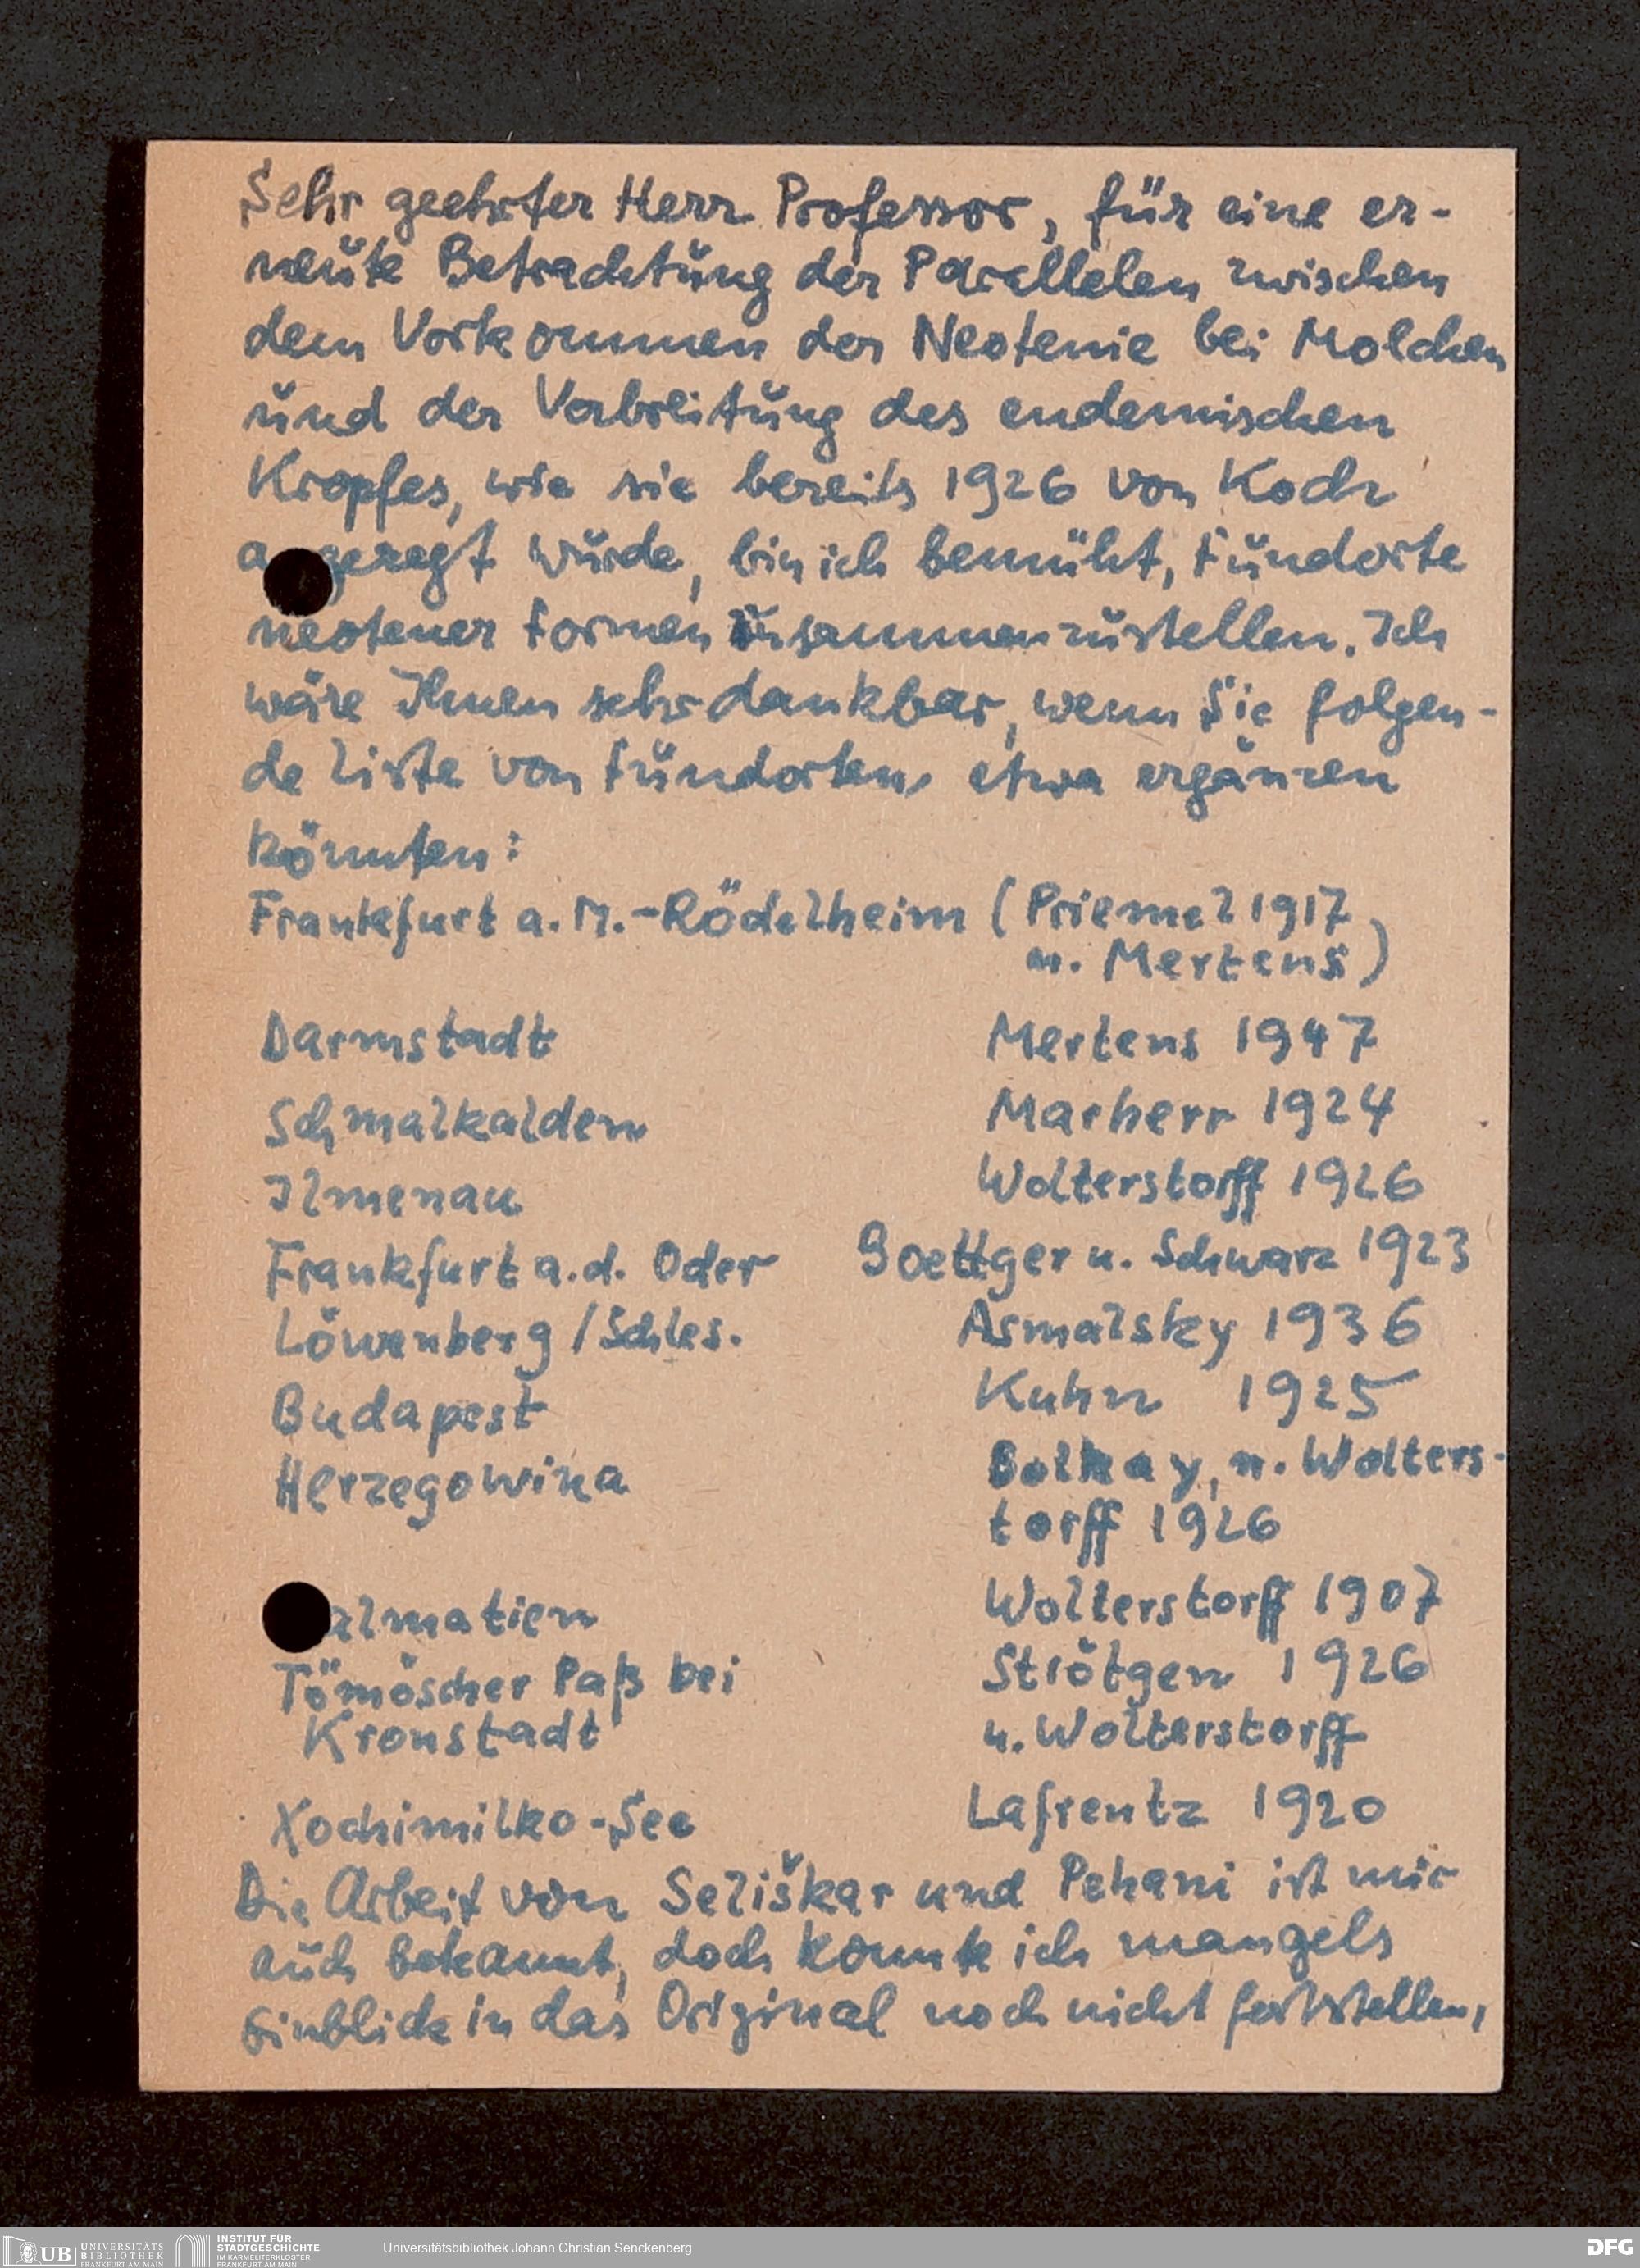 Sehr geehrter Herr Professor, für eine er-
neute Betrachtung der Parallelen zwischen
dem Vorkommen der Neotenie bei Molchen
und der Verbreitung des endemischen
Kropfes, wie sie bereits 1926 von Koch
a geregt wurde, bin ich bemüht, Fundorte
neotener Formen zusammenzustellen. Ich
wäre Ihnen sehr dankbar, wenn Sie folgen-
de Liste von Fundorten etwa ergänzen
könnten:
Frankfurt a. M.-Rödelheim (Priemel 1917
u. Mertens)
Darmstadt Mertens 1947
Schmalkalden Marherr 1924
Ilmenau Wolterstorff 1926
Frankfurt a.d. Oder Boettger u. Schwarz 1923
Löwenberg/Schles. Asmalsky 1936
Budapest Kuhn 1925
Herzegowina Bolkay, u. Wolters-
torff 1926
almatien Wolterstorff 1907
Tömöscher Paß bei Strötgen 1926
Kronstadt u. Wolterstorff
Xochimilko-See Lafrentz 1920
Die Arbeit von Seliškar und Pehani ist mir
auch bekannt, doch konnte ich mangels
Einblick in das Original noch nicht feststellen,
UB UNIVERSITÄTS
BIBLIOTHEK
FRANKFURT AM MAIN
INSTITUT FÜR
STADTGESCHICHTE
IM KARMELITERKLOSTER
FRANKFURT AM MAIN
Universitätsbibliothek Johann Christian Senckenberg
DFG